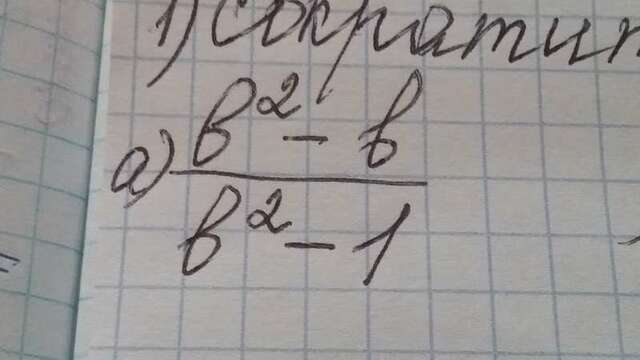 1) Сократит
а) b² - b
b² - 1